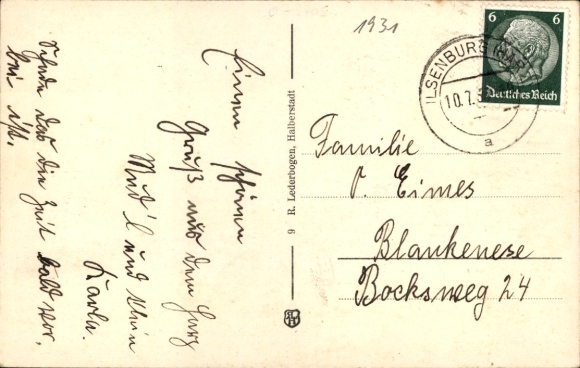 Einen schönen
Gruß aus dem Harz
und
Schade das die Zeit bald vor-
bei ist.
1931
9 R. Lederbogen, Halberstadt
ILSENBURG (HARZ)
10.7.3
a
6 6
Deutsches Reich
Familie
P. Eimes
Blankenese
Bocksweg 24